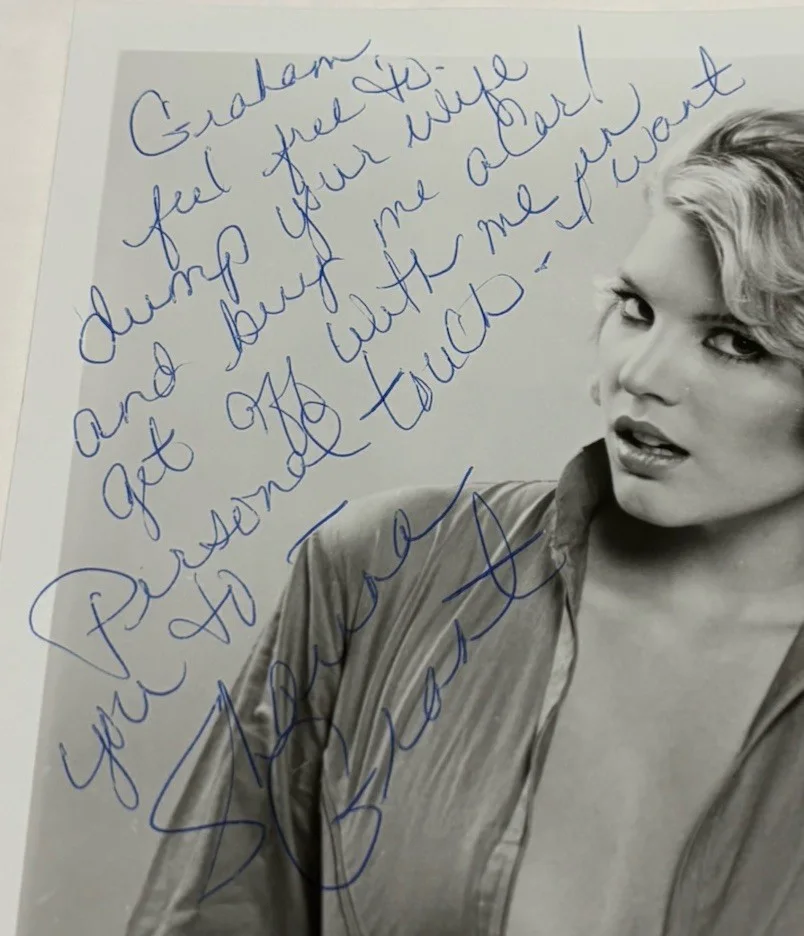 Graham
feel free to-
dump your wife
and buy me a Car!
get off with me in
Personal touch - I want
you to -
Shauna
Grant